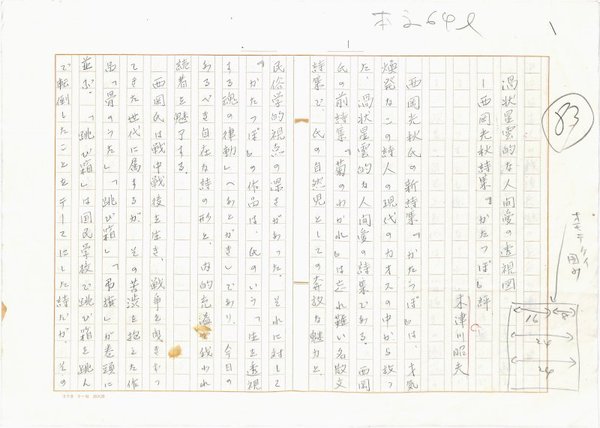 本文64ℓ
1
1
83
渦状星雲的な人間愛の透視図
―西岡光秋詩集『かたつぼ』評
木津川昭夫
西岡光秋氏の新詩集『かたつぼ』は、才気
煥発なこの詩人の現代のカオスの中から放っ
た、渦状星雲的な人間愛の詩集である。西岡
氏の前詩集『菊のわかれ』は忘れ難い名散文
詩集で、氏の自然児としての奔放な魅力と
民俗学的視点の深さがあった。それに対して
『かたつぼ』の作品は、氏のいう「生を透視
する魂の律動」(あとがき)であり、今日の
あるべき自在な詩の形と、内的充溢で我われ
読者を魅了する。
西岡氏は戦中戦後を生き、戦争を
てきた世代に属するが、その苦渋を抱えた作
品「骨のうた」「跳び箱」「弔旗」が巻頭に
並ぶ。「跳び箱」は国民学校で跳び箱を跳ん
で転倒したことをテーマにした詩だが、その
16
8
24
24